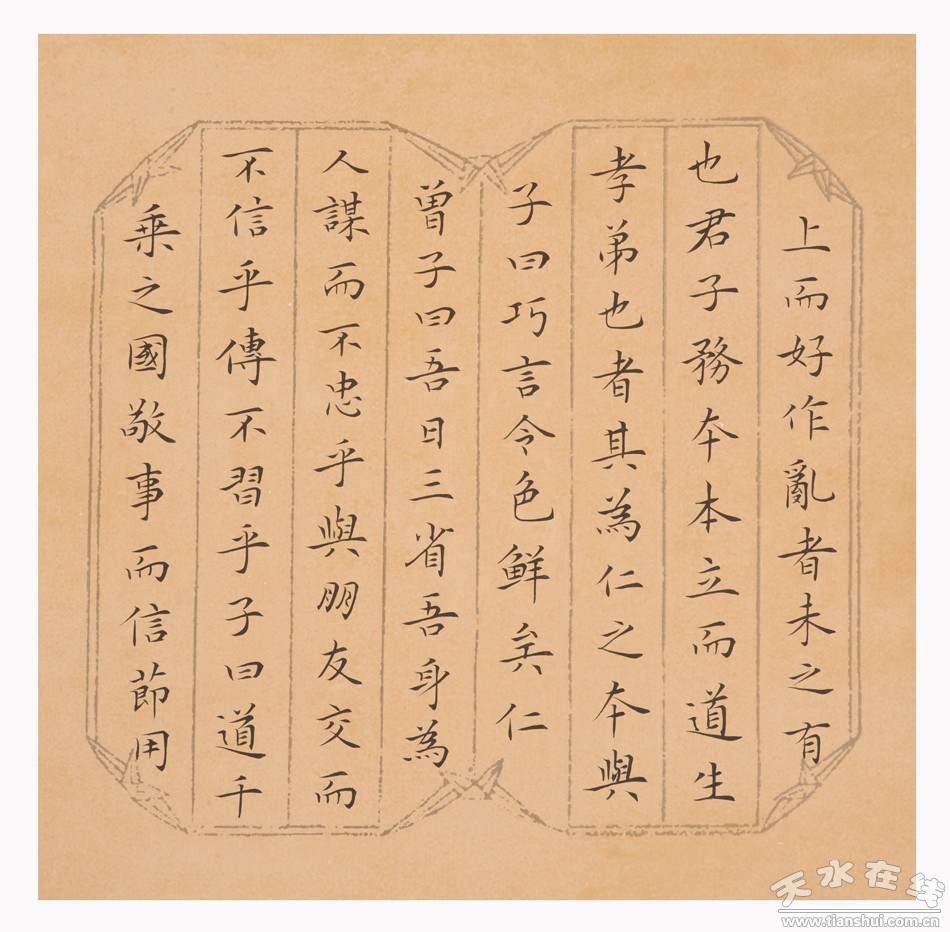 上而好作亂者未之有
也君子務本本立而道生
孝弟也者其為仁之本與
子曰巧言令色鮮矣仁
曾子曰吾日三省吾身為
人謀而不忠乎與朋友交而
不信乎傳不習乎子曰道千
乗之國敬事而信節用
天水在线
www.tianshui.com.cn